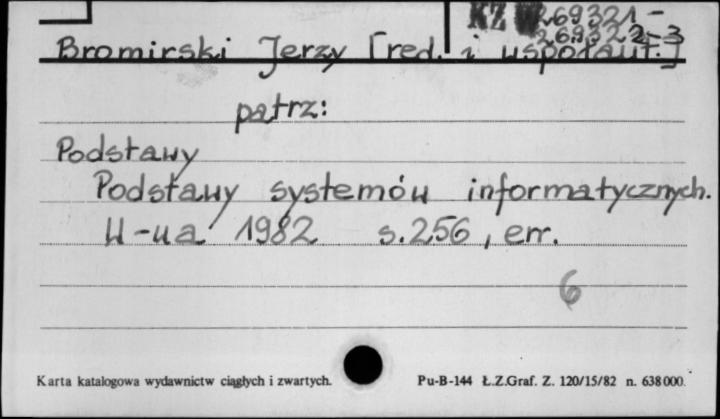 KZ W 269321-
269322-3
Bromirski Jerzy [red. i współaut.]
patrz:
Podstawy
Podstawy systemów informatycznych.
W-wa 1982 s. 256, err.
6
Karta katalogowa wydawnictw ciągłych i zwartych. Pu-B-144 Ł.Z.Graf. Z. 120/15/82 n. 638000.